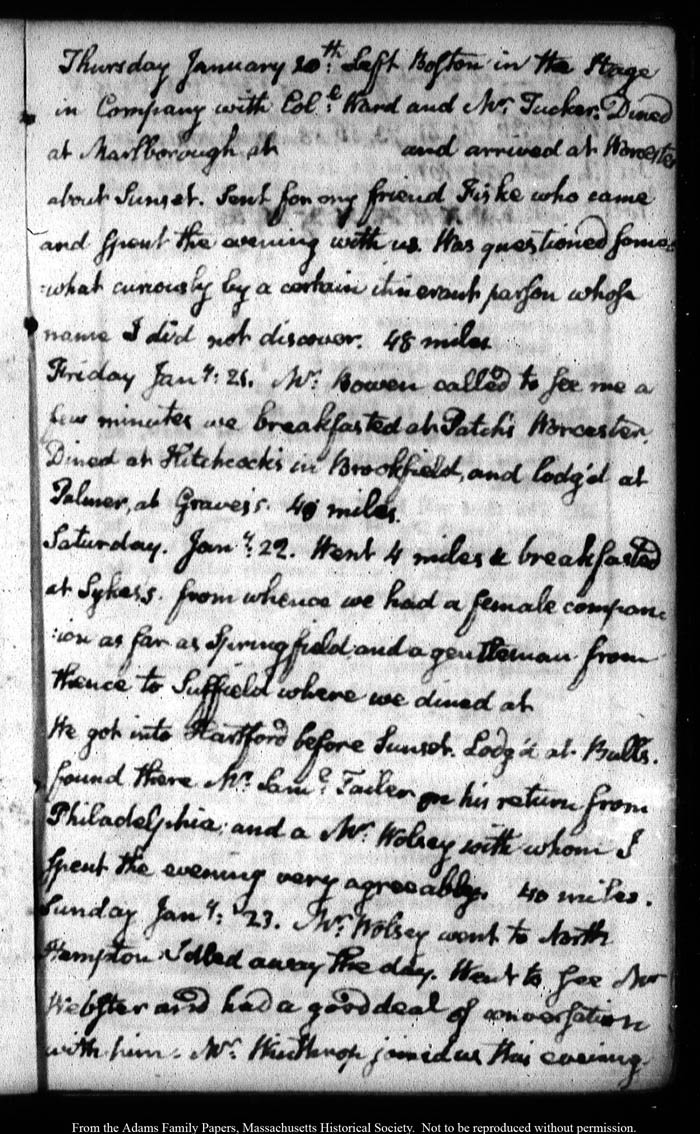 Thursday January 20th: Left Boston in the Stage
in Company with Coll: Ward and Mr. Tucker. Dined
at Marlborough at and arrived at Worcester
about Sunset. Sent for my friend Fiske who came
and spent the evening with us. Was questioned some=
=what curiously by a certain itinerant parson whose
name I did not discover. 48 miles
Friday Jany: 21. Mr. Bowen called to see me a
few minutes we breakfasted at Patch's Worcester.
Dined at Hitchcock's in Brookfield, and lodg'd at
Palmer, at Graves's. miles.
Saturday. Jany: 22. Went 4 miles & breakfasted
at Sykes's. from whence we had a female compan
:ion as far as Springfield, and a gentleman from
thence to Suffield where we dined at
We got into Hartford before Sunset. Lodg'd at Bulls.
found there Mr. Saml: Tailer on his return from
Philadelphia; and a Mr. Wolsey with whom I
spent the evening very agreeably. 40 miles.
Sunday Jany: 23. Mr. Wolsey went to North
Hampton Idled away the day. Went to see Mr
Webster and had a good deal of conversation
with him. Mr. Winthrop joined us this evening.
From the Adams Family Papers, Massachusetts Historical Society. Not to be reproduced without permission.